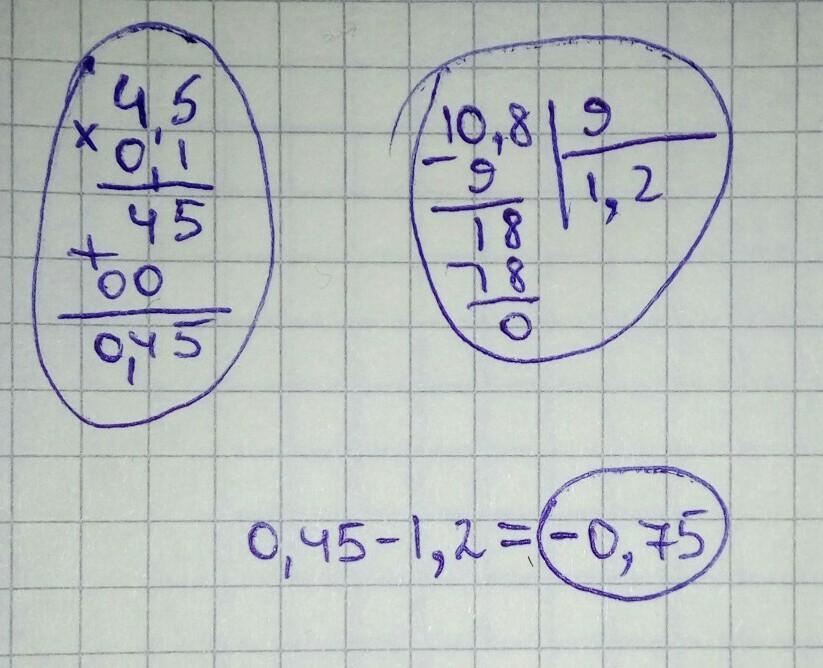 4,5
× 0,1
45
+ 00
0,45
10,8 | 9
- 9
1,2
18
- 18
0
0,45-1,2=-0,75